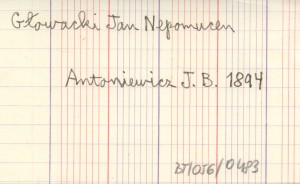 Głowacki Jan Nepomucen
Antoniewicz J. B. 1894
BT/056/0483